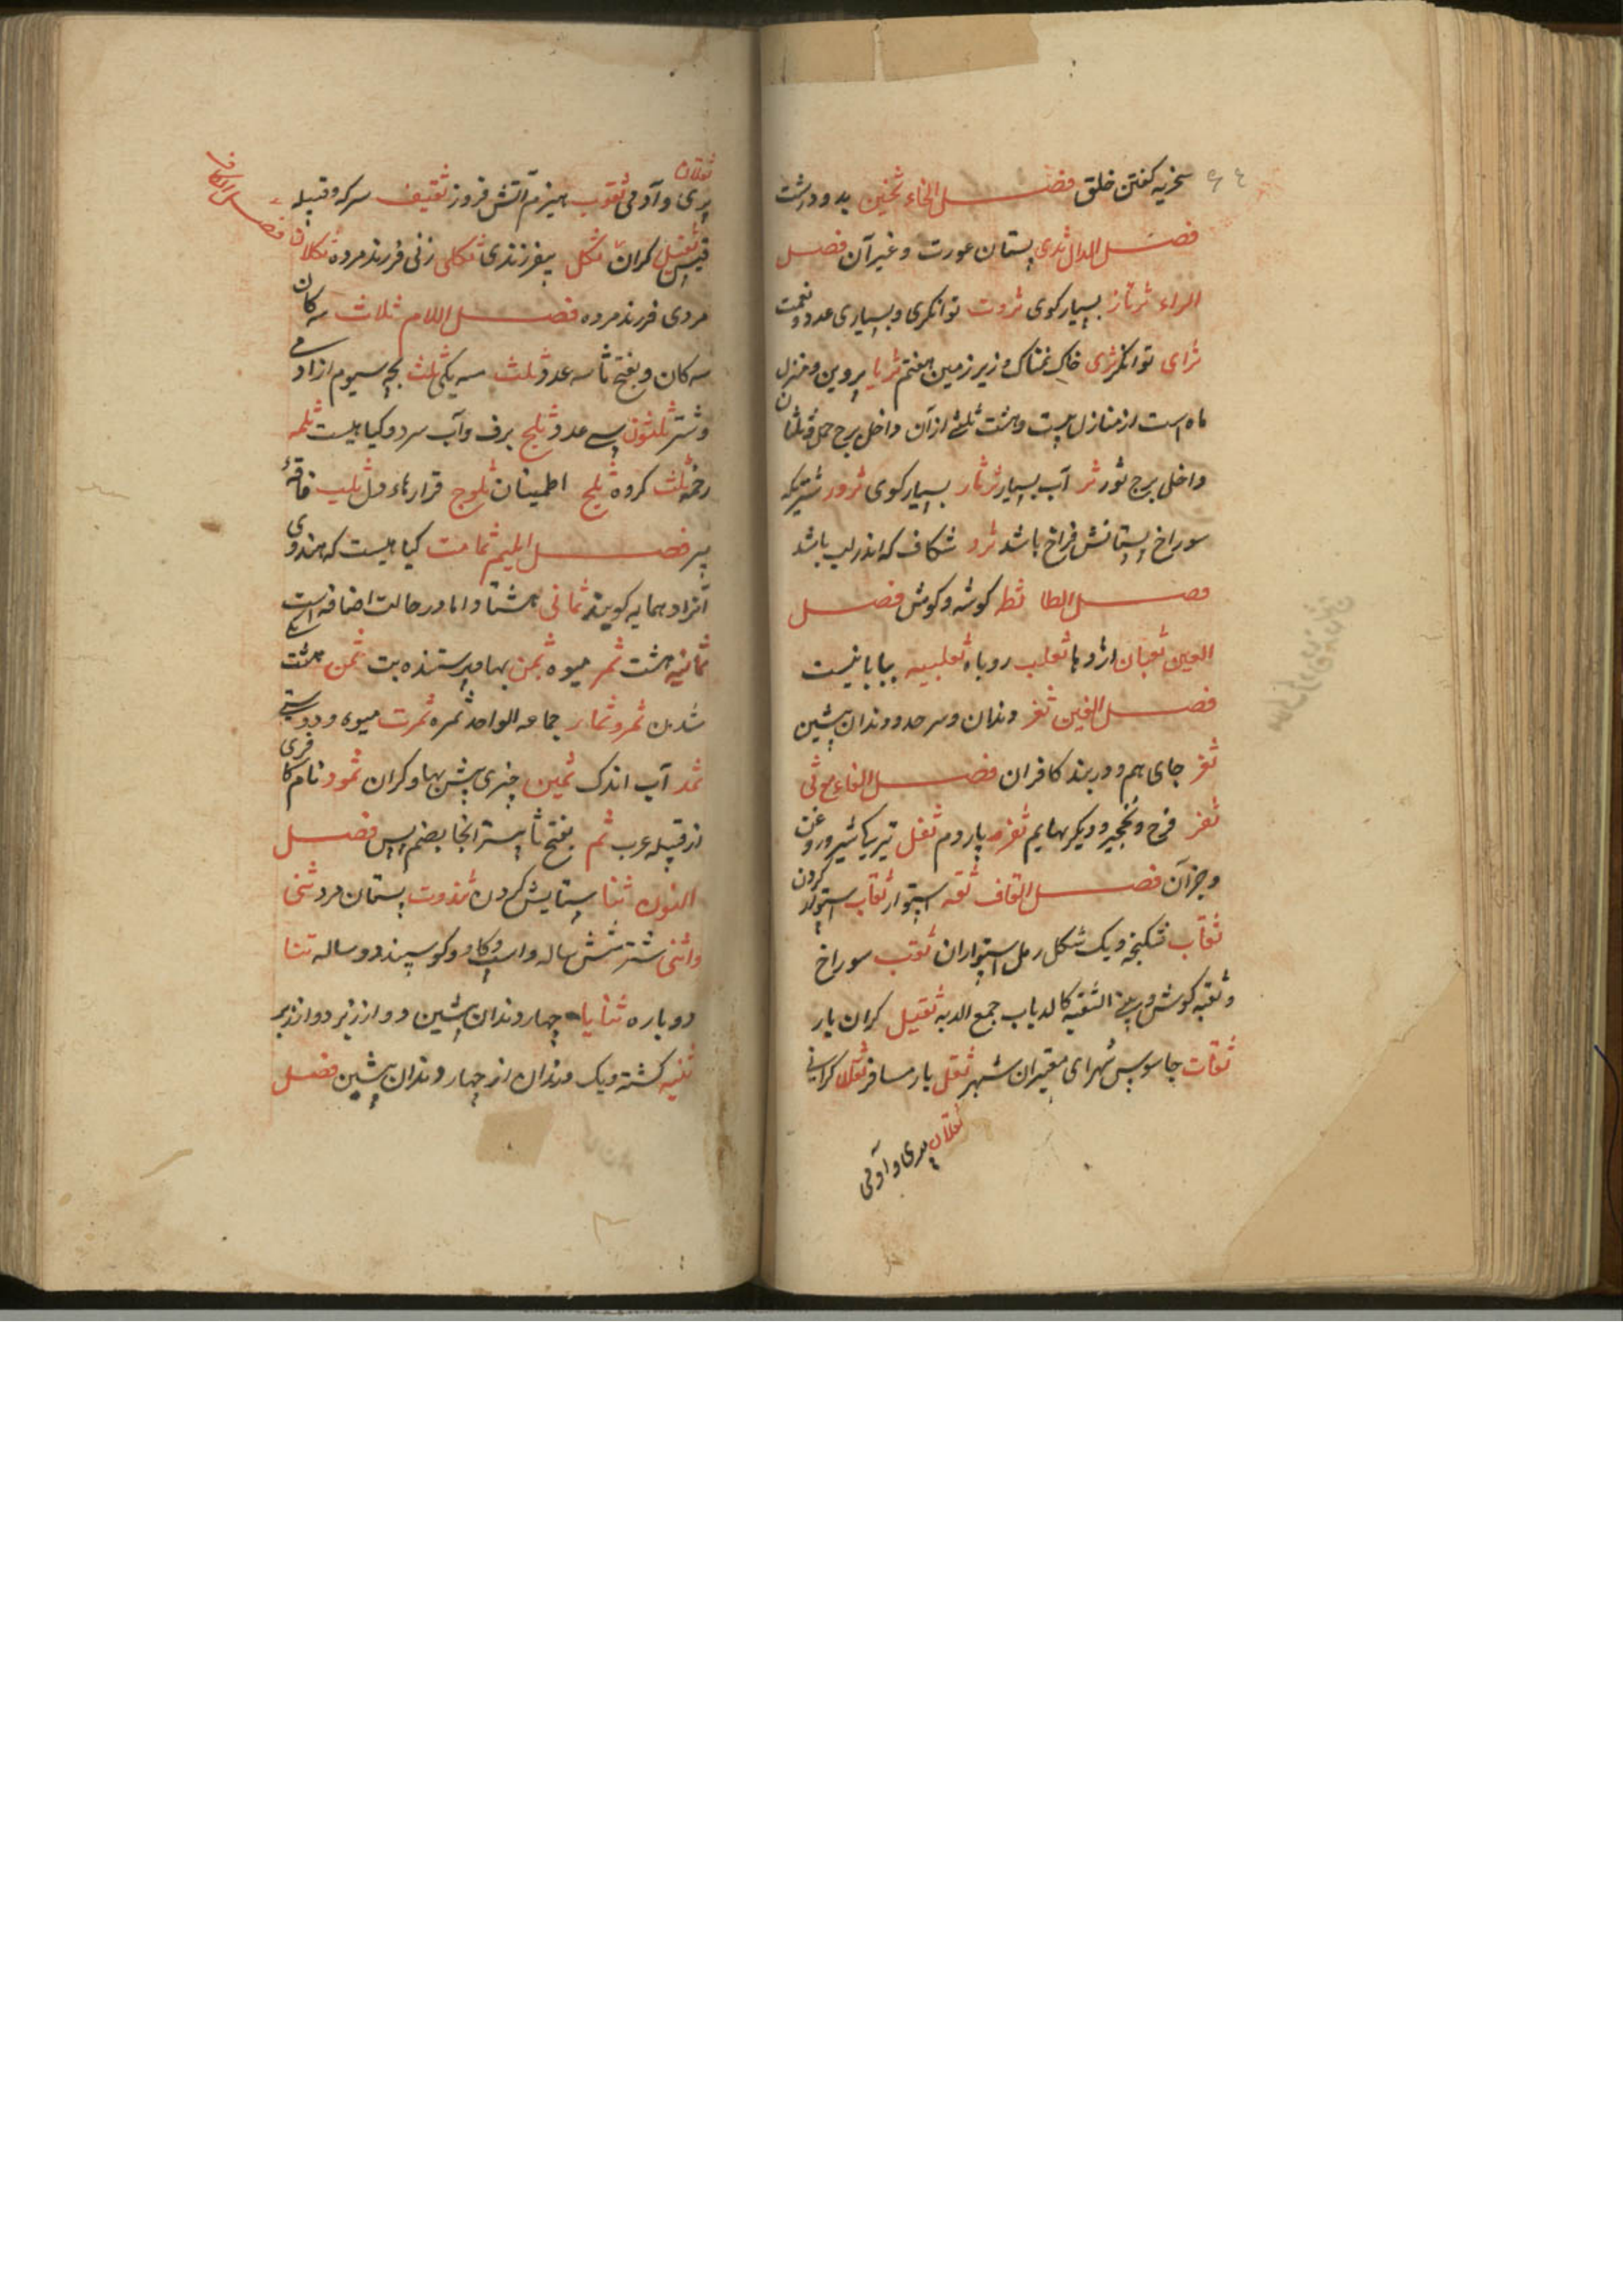 سخریه کفتن خلق فصل الخاء ثخین بد و درشت
فصل الدال ثدی پستان عورت و غیر آن فصل
الراء ثرثار بسیار کوی ثروت توانکری و بسیاری عدد و نعمت
ثرای توانکر ثری خاک نمناک و زیر زمین هفتم ثریا پروین و منزل
ماه است از منازل بیست و هشت ثلثی از آن داخل برج حمل و ثلثان
داخل برج ثور ثر آب بسیار ثرثار بسیار کوی ثرور شتریکه
سوراخ پستانش فراخ باشد ثرو شکاف که اندر لب باشد
فصل الطا ثطه کوشه و کوش فصل
العین ثعبان اژدها ثعلب روباه ثعلبیه بیابانیست
فصل الغین ثغر دندان و سرحد و دندان پیشین
ثغر جای هم و دربند کافران فصل الفاء مع ثی
ثغر فرج و نخجیر و دیکر بهایم ثفره پاردم ثفل تیریکی شیر و روغن
و جز آن فصل القاف ثقه استوار ثقاب استوار کردن
ثقاب شکنجه و یک شکل رمل استواران ثقب سوراخ
و ثقبه کوش و بینی الثقبه کالدباب جمع الدبه ثقیل کران بار
ثقات جاسوس شهرای مقیران شهر ثقل بار مسافر ثقلا کرانی
ثقلان پری و آدمی
ثقلان
پری و آدمی ثقوب هیزم آتش فروز ثقیف سرکه و قبیله
قیس ثقیل کران ثکل بیفرزندی ثکلی زنی فرزند مرده ثکلان فصل الکاف
مردی فرزند مرده فصل اللام ثلاث سه کان
سه کان و بفتح ثا سه عدد ثلث سه یکی ثلث بچه سیوم از آدمی
و شتر ثلثون سی عدد ثلج برف و آب سرد و کیاهیست ثلمه
رخنه ثلث کروه ثلج اطمینان ثلوج قرارهاء دل ثلیب فاقه
پیر فصل المیم ثمامت کیاهیست که هندوی
آنرا دهمایه کویند ثمانی هشتاد اما در حالت اضافه است
ثمانیه هشت ثمر میوه ثمن بها و پرستنده بت ثمن هشت
شدن ثمر و ثمار جماعه الواحد ثمره ثمرت میوه و دوستی
ثمد آب اندک ثمین چیزی بیش بها و کران ثمود نام کافری
از قبیله عرب ثم بفتح ثا بستر انجا بضم پس فصل
النون ثنا ستایش کردن ثندوت پستان مرد ثنی
و اثنی شتر شش ساله و اسپ و کاو و کوسپند دو ساله ثنا
دوباره ثنایا چهار دندان پیشین دو از زیر دو از زبر
ثنیه کشته و یک دندان از چهار دندان پیشین فصل